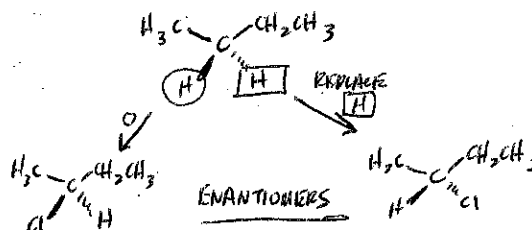 H₃C CH₂CH₃
C
H H
REPLACE
H
H₃C CH₂CH₃
C
Cl H
ENANTIOMERS
H₃C CH₂CH₃
C
H Cl